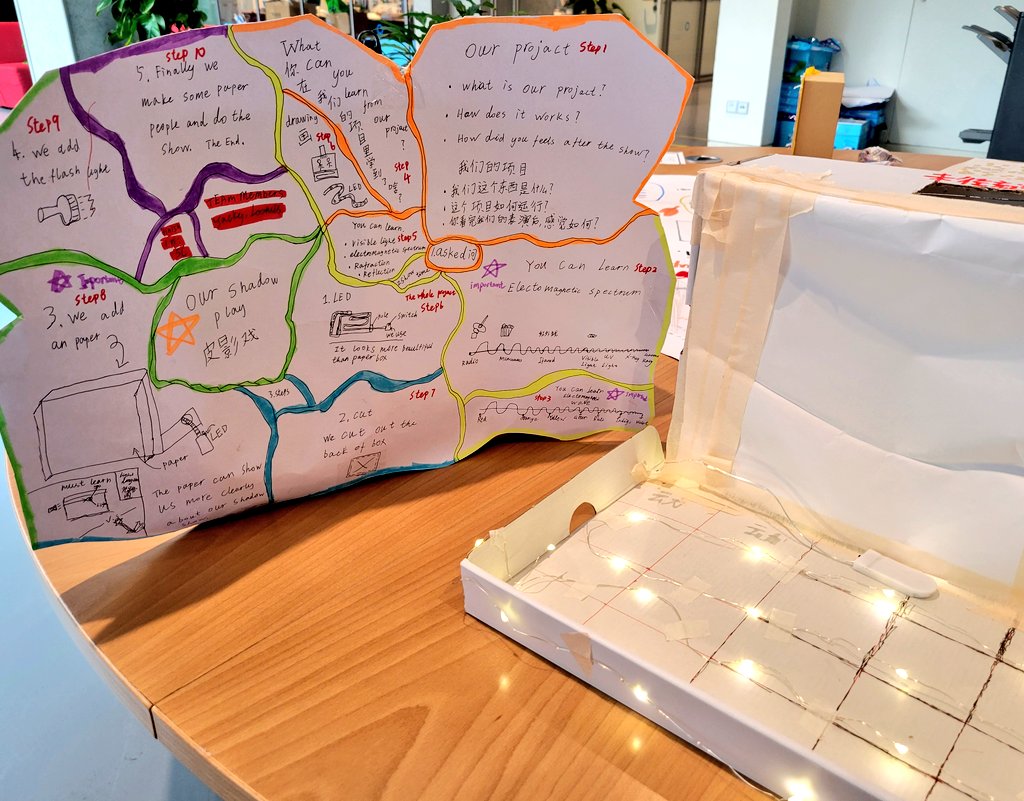 Our project Step 1
· what is our project?
· How does it works?
· How did you feels after the show?
我们的项目
· 我们这个东西是什么?
· 这个项目如何运行?
· 你看完我们的表演后,感觉如何?
1. asked 问
You Can Learn Step 2
important
Electomagnetic spectrum
Radio
Visible Light
UV Light
You can learn
step3
important
Red
What can you learn from our project?
你在我们的项目里学到了啥?
Step 4
drawing
LED
You can learn
step 5
· Visible light
· electromagnetic spectrum
· Rafraction
· Reflection
The whole project
Step 6
1. LED
switch
It looks more beautiful
than paper box
Step 7
2. cut
we cut out the
back of box
3. steps
Important
Step 8
3. We add
an paper
LED
paper
must learn
The paper can show
us more clearly
about our shadow
Step 9
4. we add
the flash light
Step 10
5. Finally we
make some paper
people and do the
show. The End.
TEAM Members
Our shadow
play
皮影戏